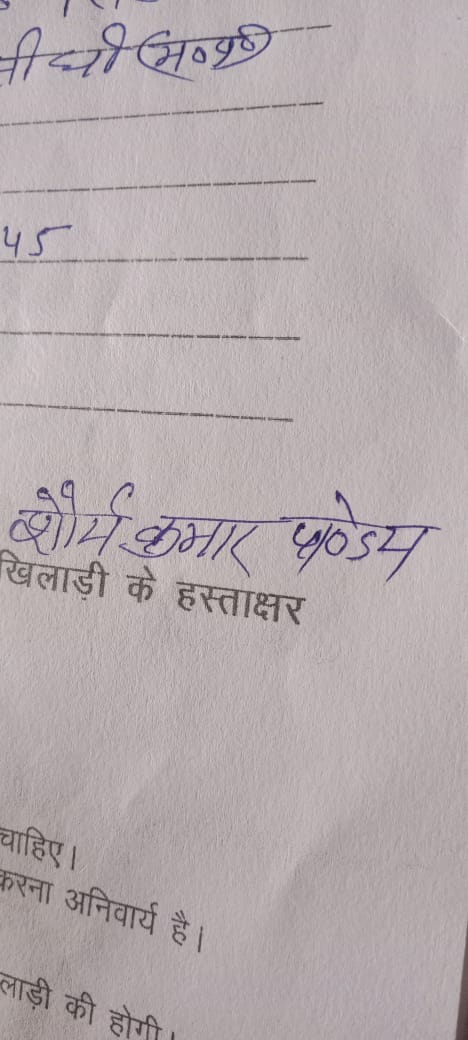 सीधी (म०प्र०)
45
शौर्य कुमार पाण्डेय
खिलाड़ी के हस्ताक्षर
चाहिए।
करना अनिवार्य है।
लाड़ी की होगी।